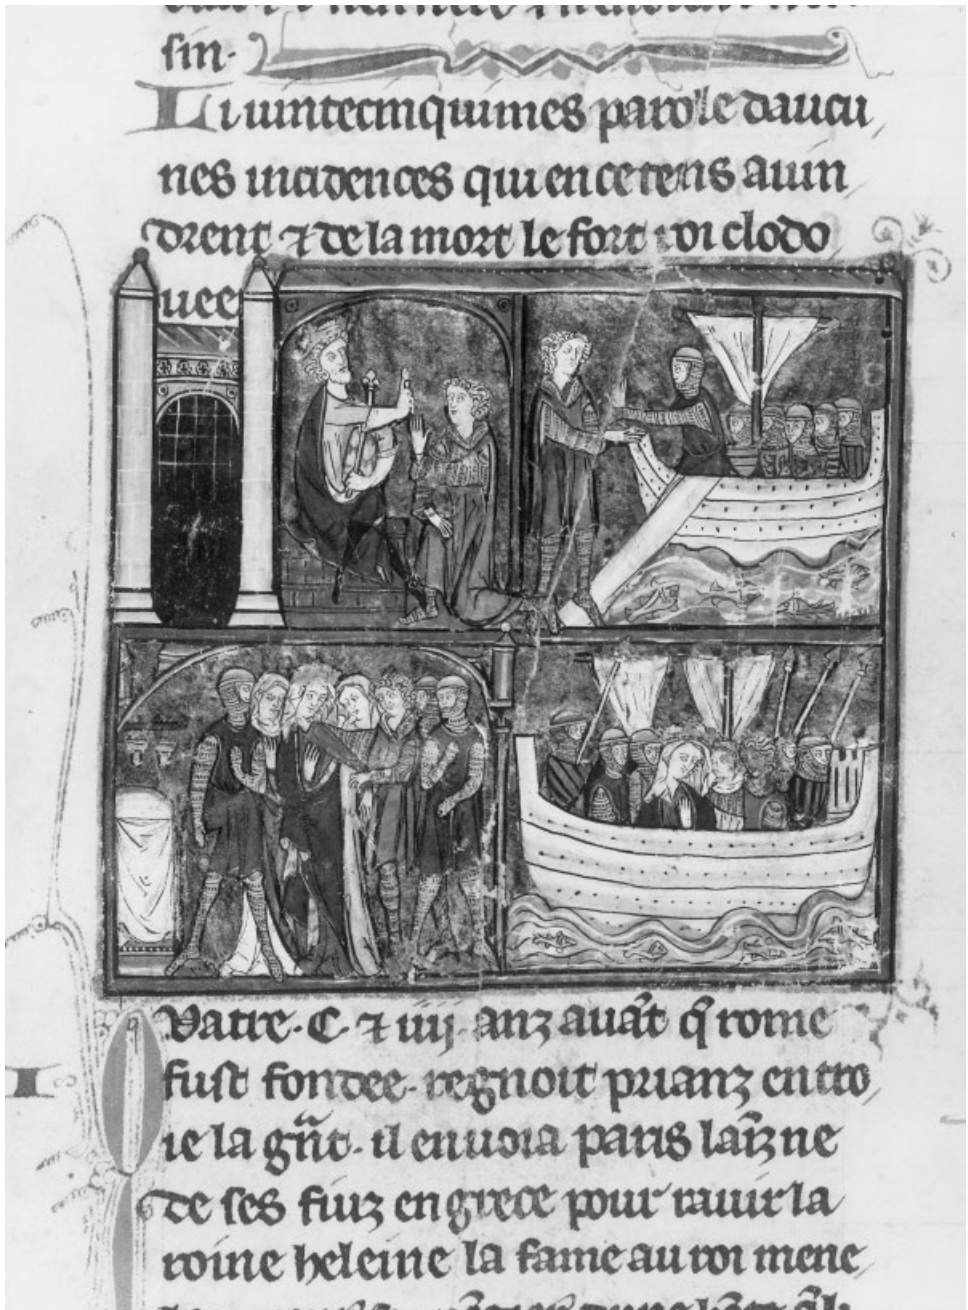 sin.
Li uintecinquimes parole daucu
nes incidences qui en ce tens auin
drent ⁊ de la mort le fort roi clodo
uee
Vatre .C. ⁊ iiij. anz auāt q̄ rome
fust fondee. regnoit prianz en tro
ie la gn̄t. il enuoia paris lainz ne
de ses fiuz en grece pour rauir la
roine heleine la fame au roi mene